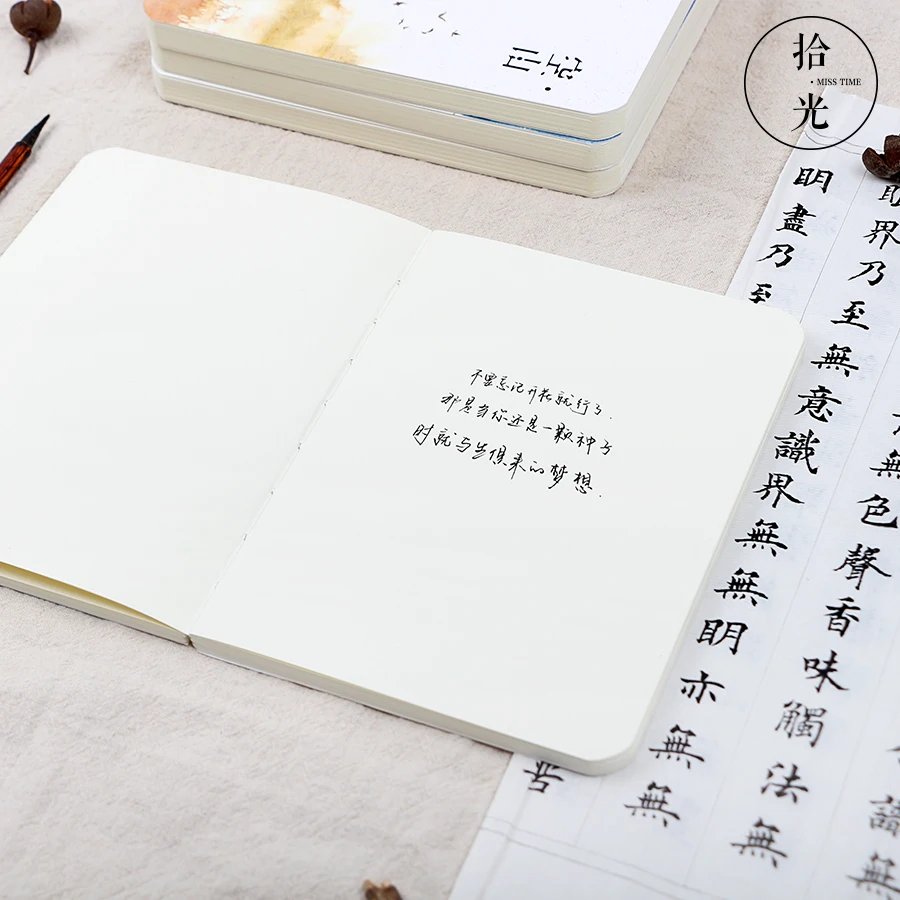 拾光
• MISS TIME
不要忘记开花就行了.
那是当你还是一颗种子
时就与生俱来的梦想.
無色聲香味觸法無
界乃至無意識界無無明亦無無
明盡乃至
苦